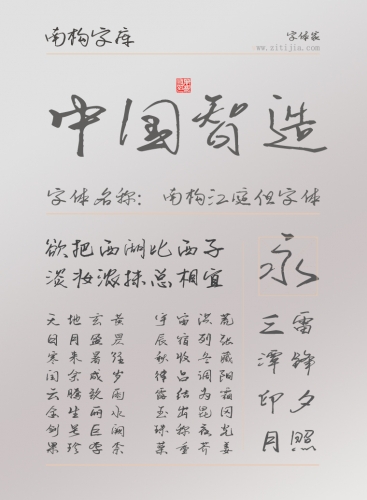 南构字库
字体家
www.zitijia.com
中国智造
字体名称： 南构江庭字体
欲把西湖比西子
淡妆浓抹总相宜
永
天地玄黄 宇宙洪荒
日月盈昃 辰宿列张
寒来暑往 秋收冬藏
闰余成岁 律吕调阳
云腾致雨 露结为霜
金生丽水 玉出昆冈
剑号巨阙 珠称夜光
果珍李柰 菜重芥姜
三潭印月
雷锋夕照